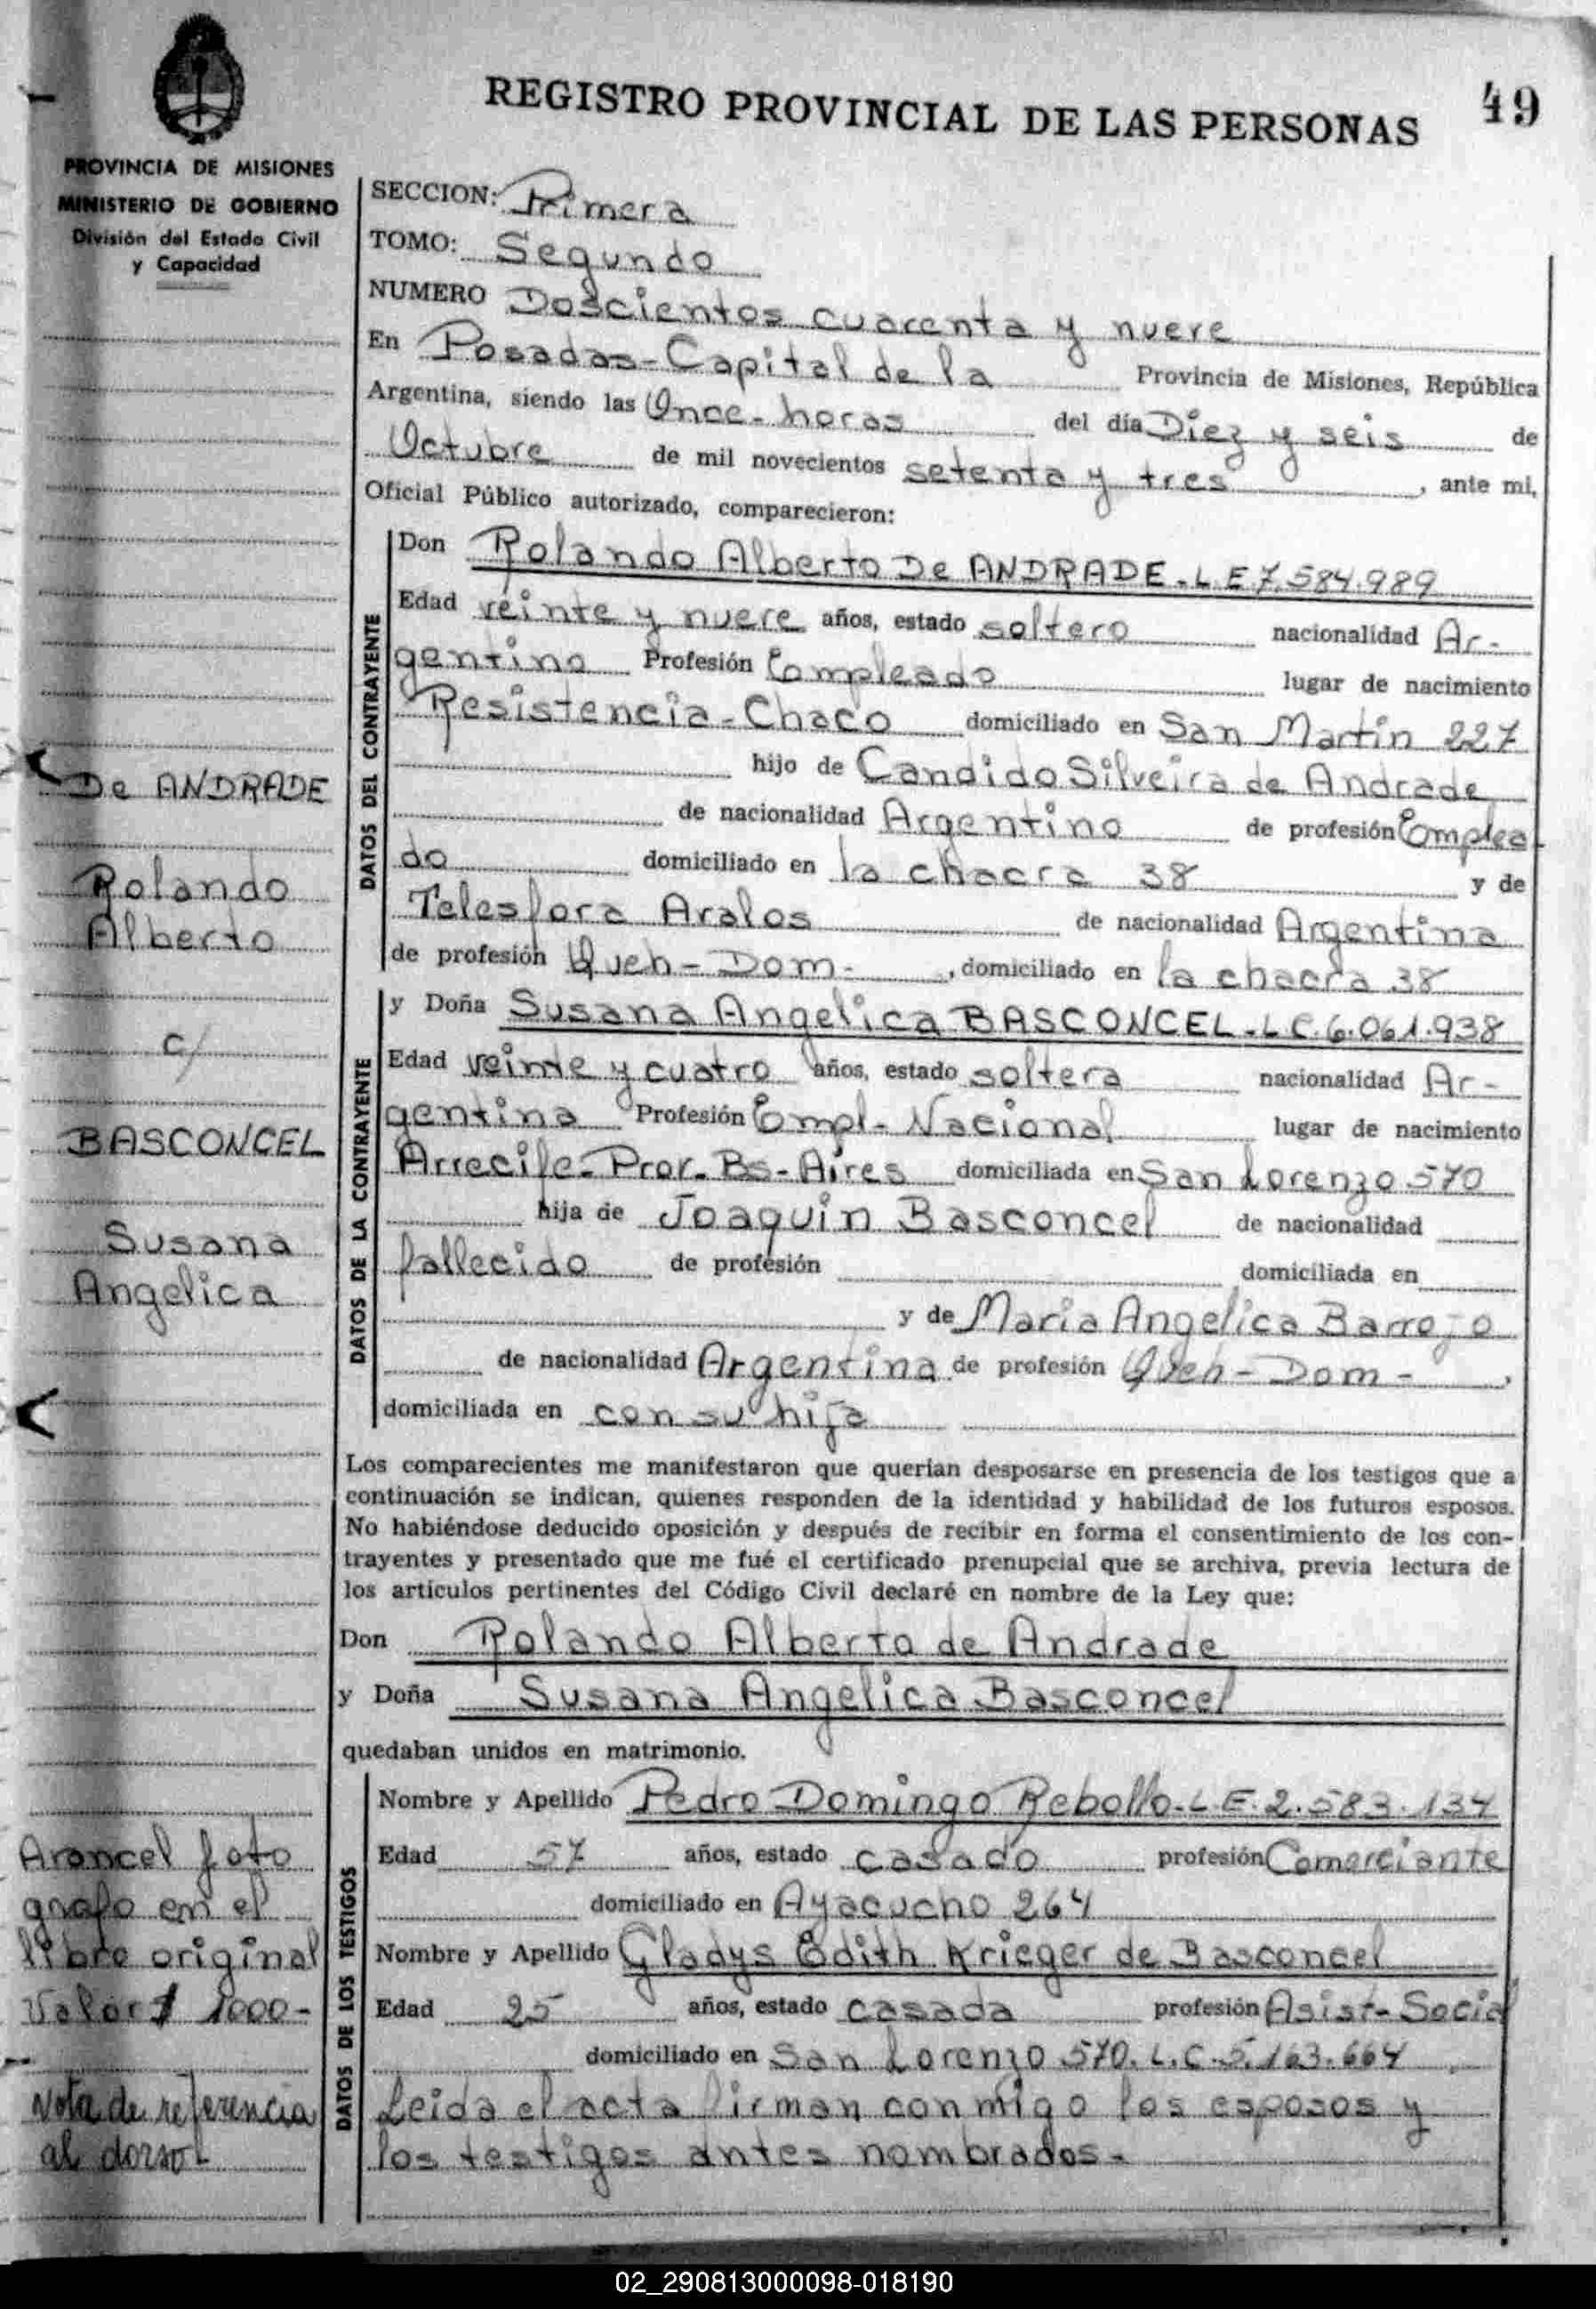 REGISTRO PROVINCIAL DE LAS PERSONAS
49
PROVINCIA DE MISIONES
MINISTERIO DE GOBIERNO
División del Estado Civil
y Capacidad
SECCION: Primera
TOMO: Segundo
NUMERO Doscientos cuarenta y nueve
En Posadas-Capital de la Provincia de Misiones, República
Argentina, siendo las Once-horas del día Diez y seis de
Octubre de mil novecientos setenta y tres, ante mi,
Oficial Público autorizado, comparecieron:
DATOS DEL CONTRAYENTE
Don Rolando Alberto De ANDRADE-L E 7.584.989
Edad veinte y nueve años, estado soltero nacionalidad Ar-
gentino Profesión Empleado lugar de nacimiento
Resistencia-Chaco domiciliado en San Martín 227
hijo de Candido Silveira de Andrade
de nacionalidad Argentino de profesión Emplea-
do domiciliado en la chacra 38 y de
Telesfora Aralos de nacionalidad Argentina
de profesión Queh-Dom-, domiciliado en la chacra 38
DATOS DE LA CONTRAYENTE
y Doña Susana Angelica BASCONCEL-L.C.6.061.938
Edad veinte y cuatro años, estado soltera nacionalidad Ar-
gentina Profesión Empl-Nacional lugar de nacimiento
Arrecife-Prov-Bs-Aires domiciliada en San Lorenzo 570
hija de Joaquin Basconcel de nacionalidad
fallecido de profesión domiciliada en
y de Maria Angelica Barrozo
de nacionalidad Argentina de profesión Queh-Dom-,
domiciliada en con su hija
Los comparecientes me manifestaron que querían desposarse en presencia de los testigos que a
continuación se indican, quienes responden de la identidad y habilidad de los futuros esposos.
No habiéndose deducido oposición y después de recibir en forma el consentimiento de los con-
trayentes y presentado que me fué el certificado prenupcial que se archiva, previa lectura de
los artículos pertinentes del Código Civil declaré en nombre de la Ley que:
Don Rolando Alberto de Andrade
y Doña Susana Angelica Basconcel
quedaban unidos en matrimonio.
DATOS DE LOS TESTIGOS
Nombre y Apellido Pedro Domingo Rebollo-L.E.2.583.134
Edad 57 años, estado casado profesión Comerciante
domiciliado en Ayacucho 264
Nombre y Apellido Gladys Edith Krieger de Basconcel
Edad 25 años, estado casada profesión Asist-Social
domiciliado en San Lorenzo 570. L.C.5.163.664
Leida el acta firman conmigo los esposos y
los testigos antes nombrados-
De ANDRADE
Rolando
Alberto
c/
BASCONCEL
Susana
Angelica
Arancel foto
grafo en el
libro original
Valor $ 1000-
Nota de referencia
al dorso
02_290813000098-018190